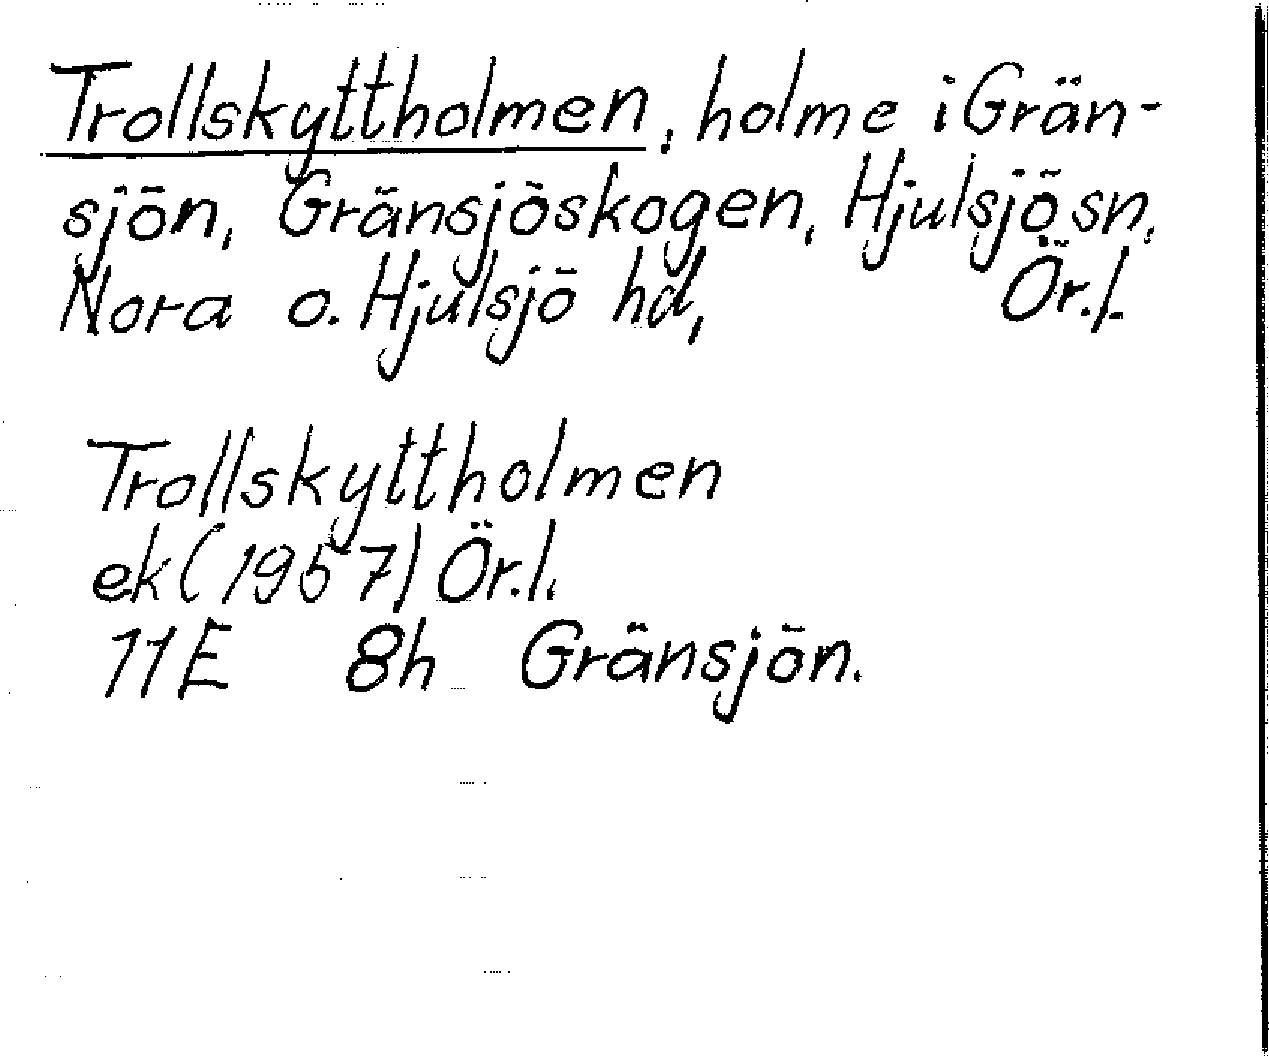 Trollskyttholmen, holme i Grän-
sjön, Gränsjöskogen, Hjulsjö sn,
Nora o. Hjulsjö hd, Ör.l.
Trollskyttholmen
ek (1957) Ör.l.
11E 8h Gränsjön.